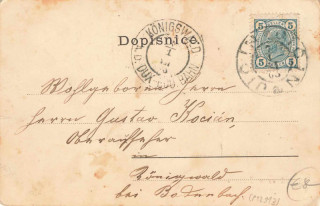 Dopisnice
KÖNIGSWALD
5 5
5 5
Wohlgeboren Herrn
Herrn Gustav Kocián,
Oberaufseher
in
Königswald
bei Bodenbach.